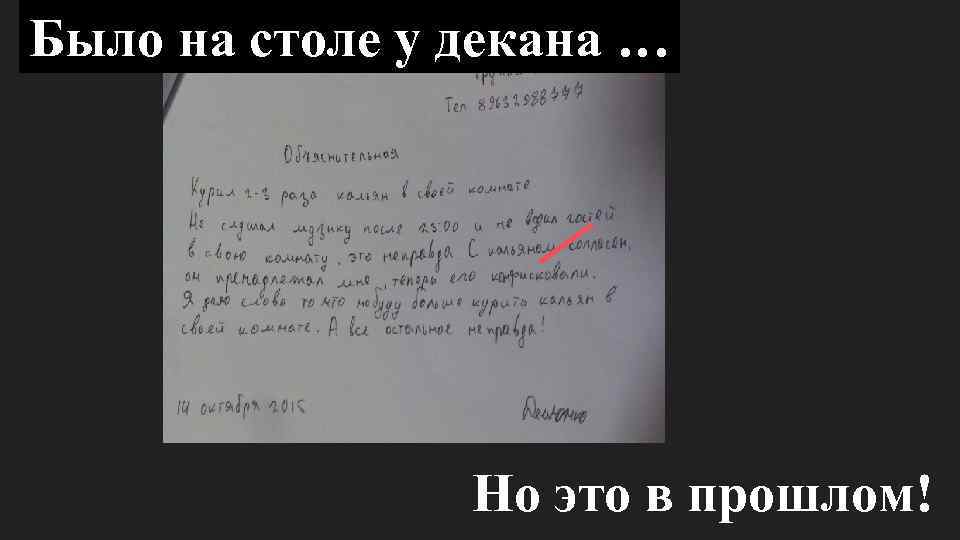 Было на столе у декана ...
Тел 89632988777
Объяснительная
Курил 2-3 раза кальян в своей комнате
Не слушал музыку после 23:00 и не водил гостей
в свою комнату, это неправда С кальяном согласен,
он пренадлежал мне, теперь его конфисковали.
Я даю слово то что небуду больше курить кальян в
своей комнате. А все остальное неправда!
14 октября 2015
Но это в прошлом!